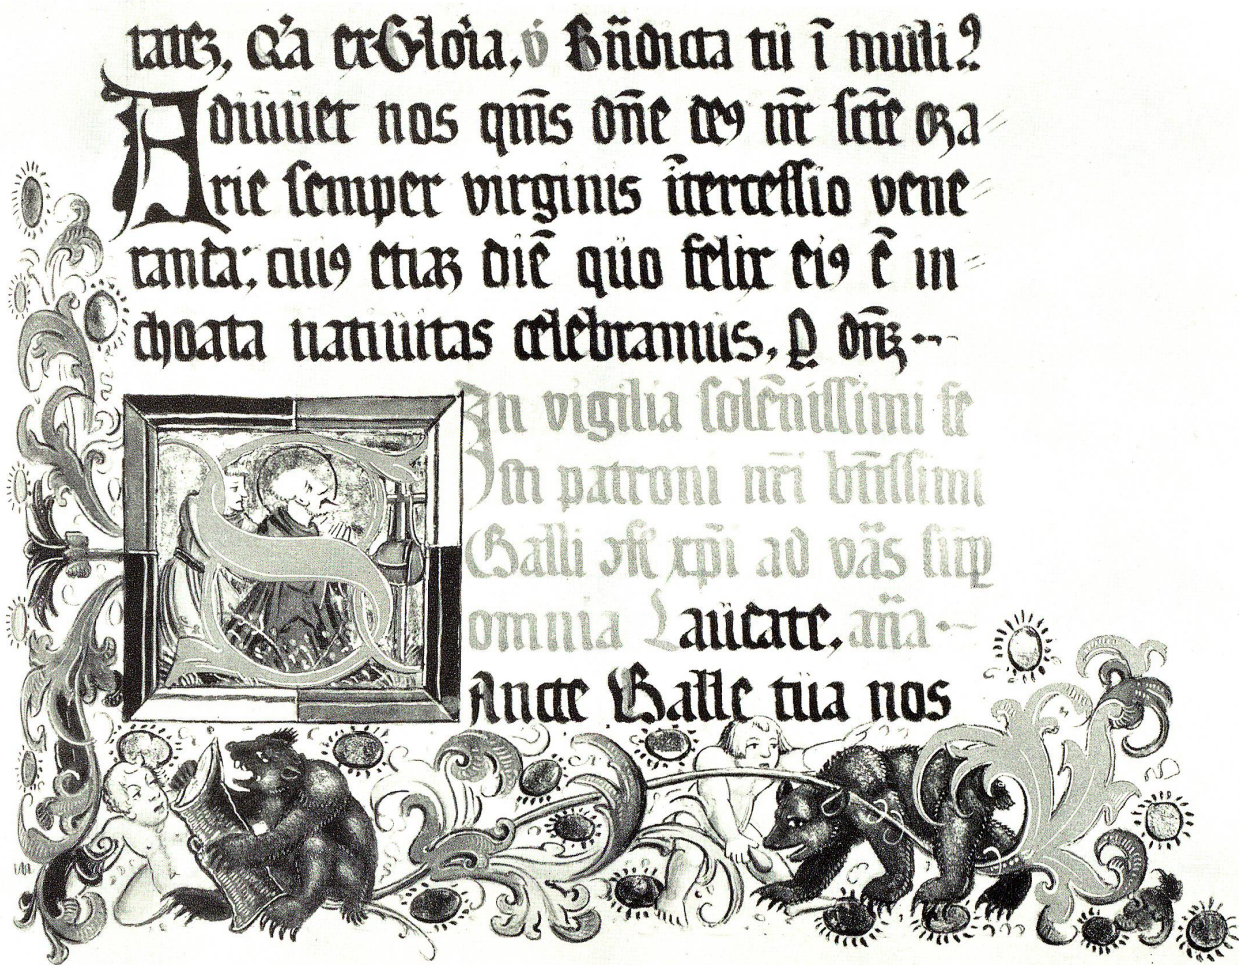 tatez, Q̃a ex Gloria, v̉ Bn̄dicta tu ī muli?
Adiuuet nos qm̄s dn̄e deꝰ nr̄ sctē Ma
rie semper virginis ītercessio vene
randa: cuiꝰ etiaz diē quo felix eiꝰ ē in
choata natiuitas celebramus. ꝑ dn̄z
In vigilia solēnissimi fe
sti patroni nr̄i btīssimi
Galli ꝯfes̄ xp̄i ad vās sup
omnia Laudate, an̄a
Sancte Galle tua nos